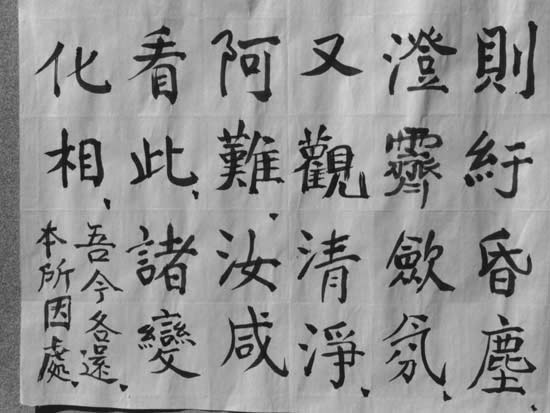 則紆昏塵、
澄霽斂氛、
又觀清淨、
阿難、汝咸
看此、諸變
化相、吾今各還、
本所因處、